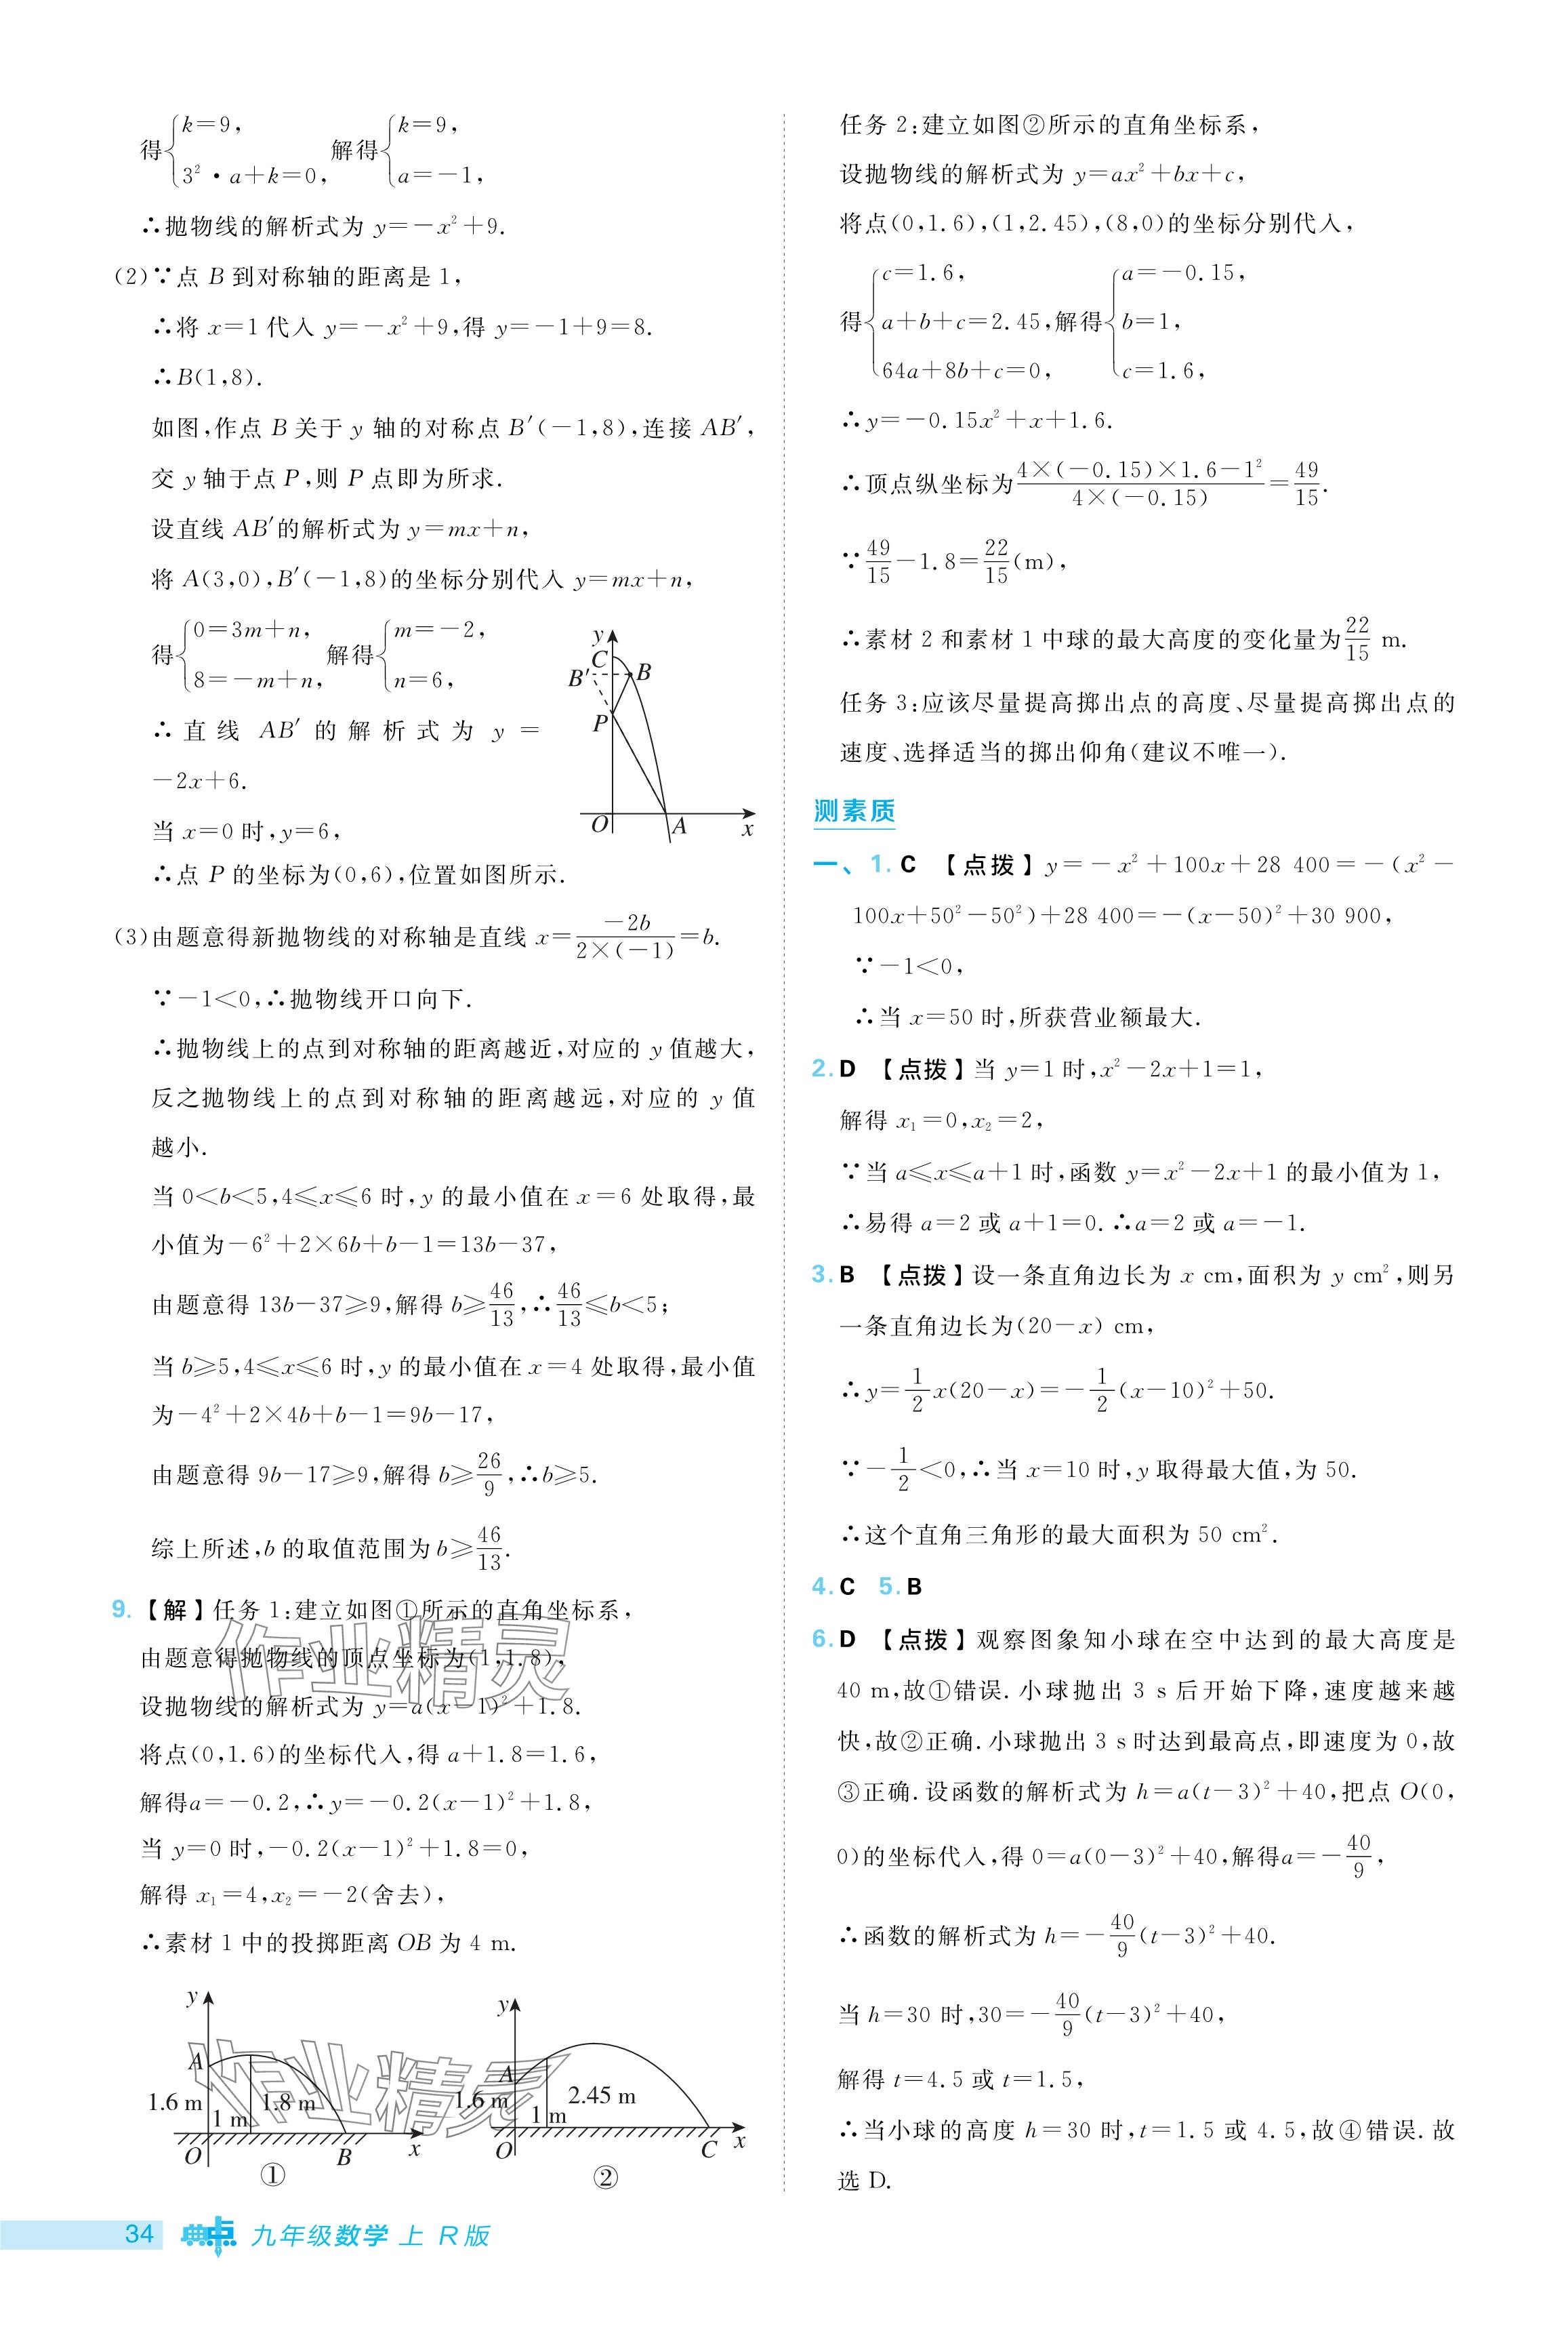 得{k=9, 3²·a+k=0, 解得{k=9, a=-1,
∴抛物线的解析式为 y=-x²+9.
(2)∵点 B 到对称轴的距离是 1,
∴将 x=1 代入 y=-x²+9,得 y=-1+9=8.
∴B(1,8).
如图,作点 B 关于 y 轴的对称点 B′(-1,8),连接 AB′,
交 y 轴于点 P,则 P 点即为所求.
设直线 AB′的解析式为 y=mx+n,
将 A(3,0),B′(-1,8)的坐标分别代入 y=mx+n,
得{0=3m+n, 8=-m+n, 解得{m=-2, n=6,
∴直线 AB′的解析式为 y=
-2x+6.
当 x=0 时,y=6,
y
C
B′
B
P
O
A
x
∴点 P 的坐标为(0,6),位置如图所示.
(3)由题意得新抛物线的对称轴是直线 x=-2b/(2×(-1))=b.
∵-1<0,∴抛物线开口向下.
∴抛物线上的点到对称轴的距离越近,对应的 y 值越大,
反之抛物线上的点到对称轴的距离越远,对应的 y 值
越小.
当 0<b<5,4≤x≤6 时,y 的最小值在 x=6 处取得,最
小值为-6²+2×6b+b-1=13b-37,
由题意得 13b-37≥9,解得 b≥46/13,∴46/13≤b<5;
当 b≥5,4≤x≤6 时,y 的最小值在 x=4 处取得,最小值
为-4²+2×4b+b-1=9b-17,
由题意得 9b-17≥9,解得 b≥26/9,∴b≥5.
综上所述,b 的取值范围为 b≥46/13.
9.【解】任务 1:建立如图①所示的直角坐标系,
由题意得抛物线的顶点坐标为(1,1.8),
设抛物线的解析式为 y=a(x-1)²+1.8.
将点(0,1.6)的坐标代入,得 a+1.8=1.6,
解得a=-0.2,∴y=-0.2(x-1)²+1.8,
当 y=0 时,-0.2(x-1)²+1.8=0,
解得 x₁=4,x₂=-2(舍去),
∴素材 1 中的投掷距离 OB 为 4 m.
作业精灵
y
A
1.6 m
1 m
1.8 m
O
B
x
①
y
A
1.6 m
1 m
2.45 m
O
C
x
②
作业精灵
任务 2:建立如图②所示的直角坐标系,
设抛物线的解析式为 y=ax²+bx+c,
将点(0,1.6),(1,2.45),(8,0)的坐标分别代入,
得{c=1.6, a+b+c=2.45, 64a+8b+c=0, 解得{a=-0.15, b=1, c=1.6,
∴y=-0.15x²+x+1.6.
∴顶点纵坐标为(4×(-0.15)×1.6-1²)/(4×(-0.15))=49/15.
∵49/15-1.8=22/15(m),
∴素材 2 和素材 1 中球的最大高度的变化量为22/15 m.
任务 3:应该尽量提高掷出点的高度、尽量提高掷出点的
速度、选择适当的掷出仰角(建议不唯一).
测素质
一、1. C 【点拨】y=-x²+100x+28 400=-(x²-
100x+50²-50²)+28 400=-(x-50)²+30 900,
∵-1<0,
∴当 x=50 时,所获营业额最大.
2. D 【点拨】当 y=1 时,x²-2x+1=1,
解得 x₁=0,x₂=2,
∵当 a≤x≤a+1 时,函数 y=x²-2x+1 的最小值为 1,
∴易得 a=2 或 a+1=0.∴a=2 或 a=-1.
3. B 【点拨】设一条直角边长为 x cm,面积为 y cm²,则另
一条直角边长为(20-x) cm,
∴y=1/2x(20-x)=-1/2(x-10)²+50.
∵-1/2<0,∴当 x=10 时,y 取得最大值,为 50.
∴这个直角三角形的最大面积为 50 cm².
4. C 5. B
6. D 【点拨】观察图象知小球在空中达到的最大高度是
40 m,故①错误.小球抛出 3 s 后开始下降,速度越来越
快,故②正确.小球抛出 3 s时达到最高点,即速度为 0,故
③正确.设函数的解析式为 h=a(t-3)²+40,把点 O(0,
0)的坐标代入,得 0=a(0-3)²+40,解得a=-40/9,
∴函数的解析式为 h=-40/9(t-3)²+40.
当 h=30 时,30=-40/9(t-3)²+40,
解得 t=4.5 或 t=1.5,
∴当小球的高度 h=30 时,t=1.5 或 4.5,故④错误.故
选 D.
34 典点 九年级数学 上 R版